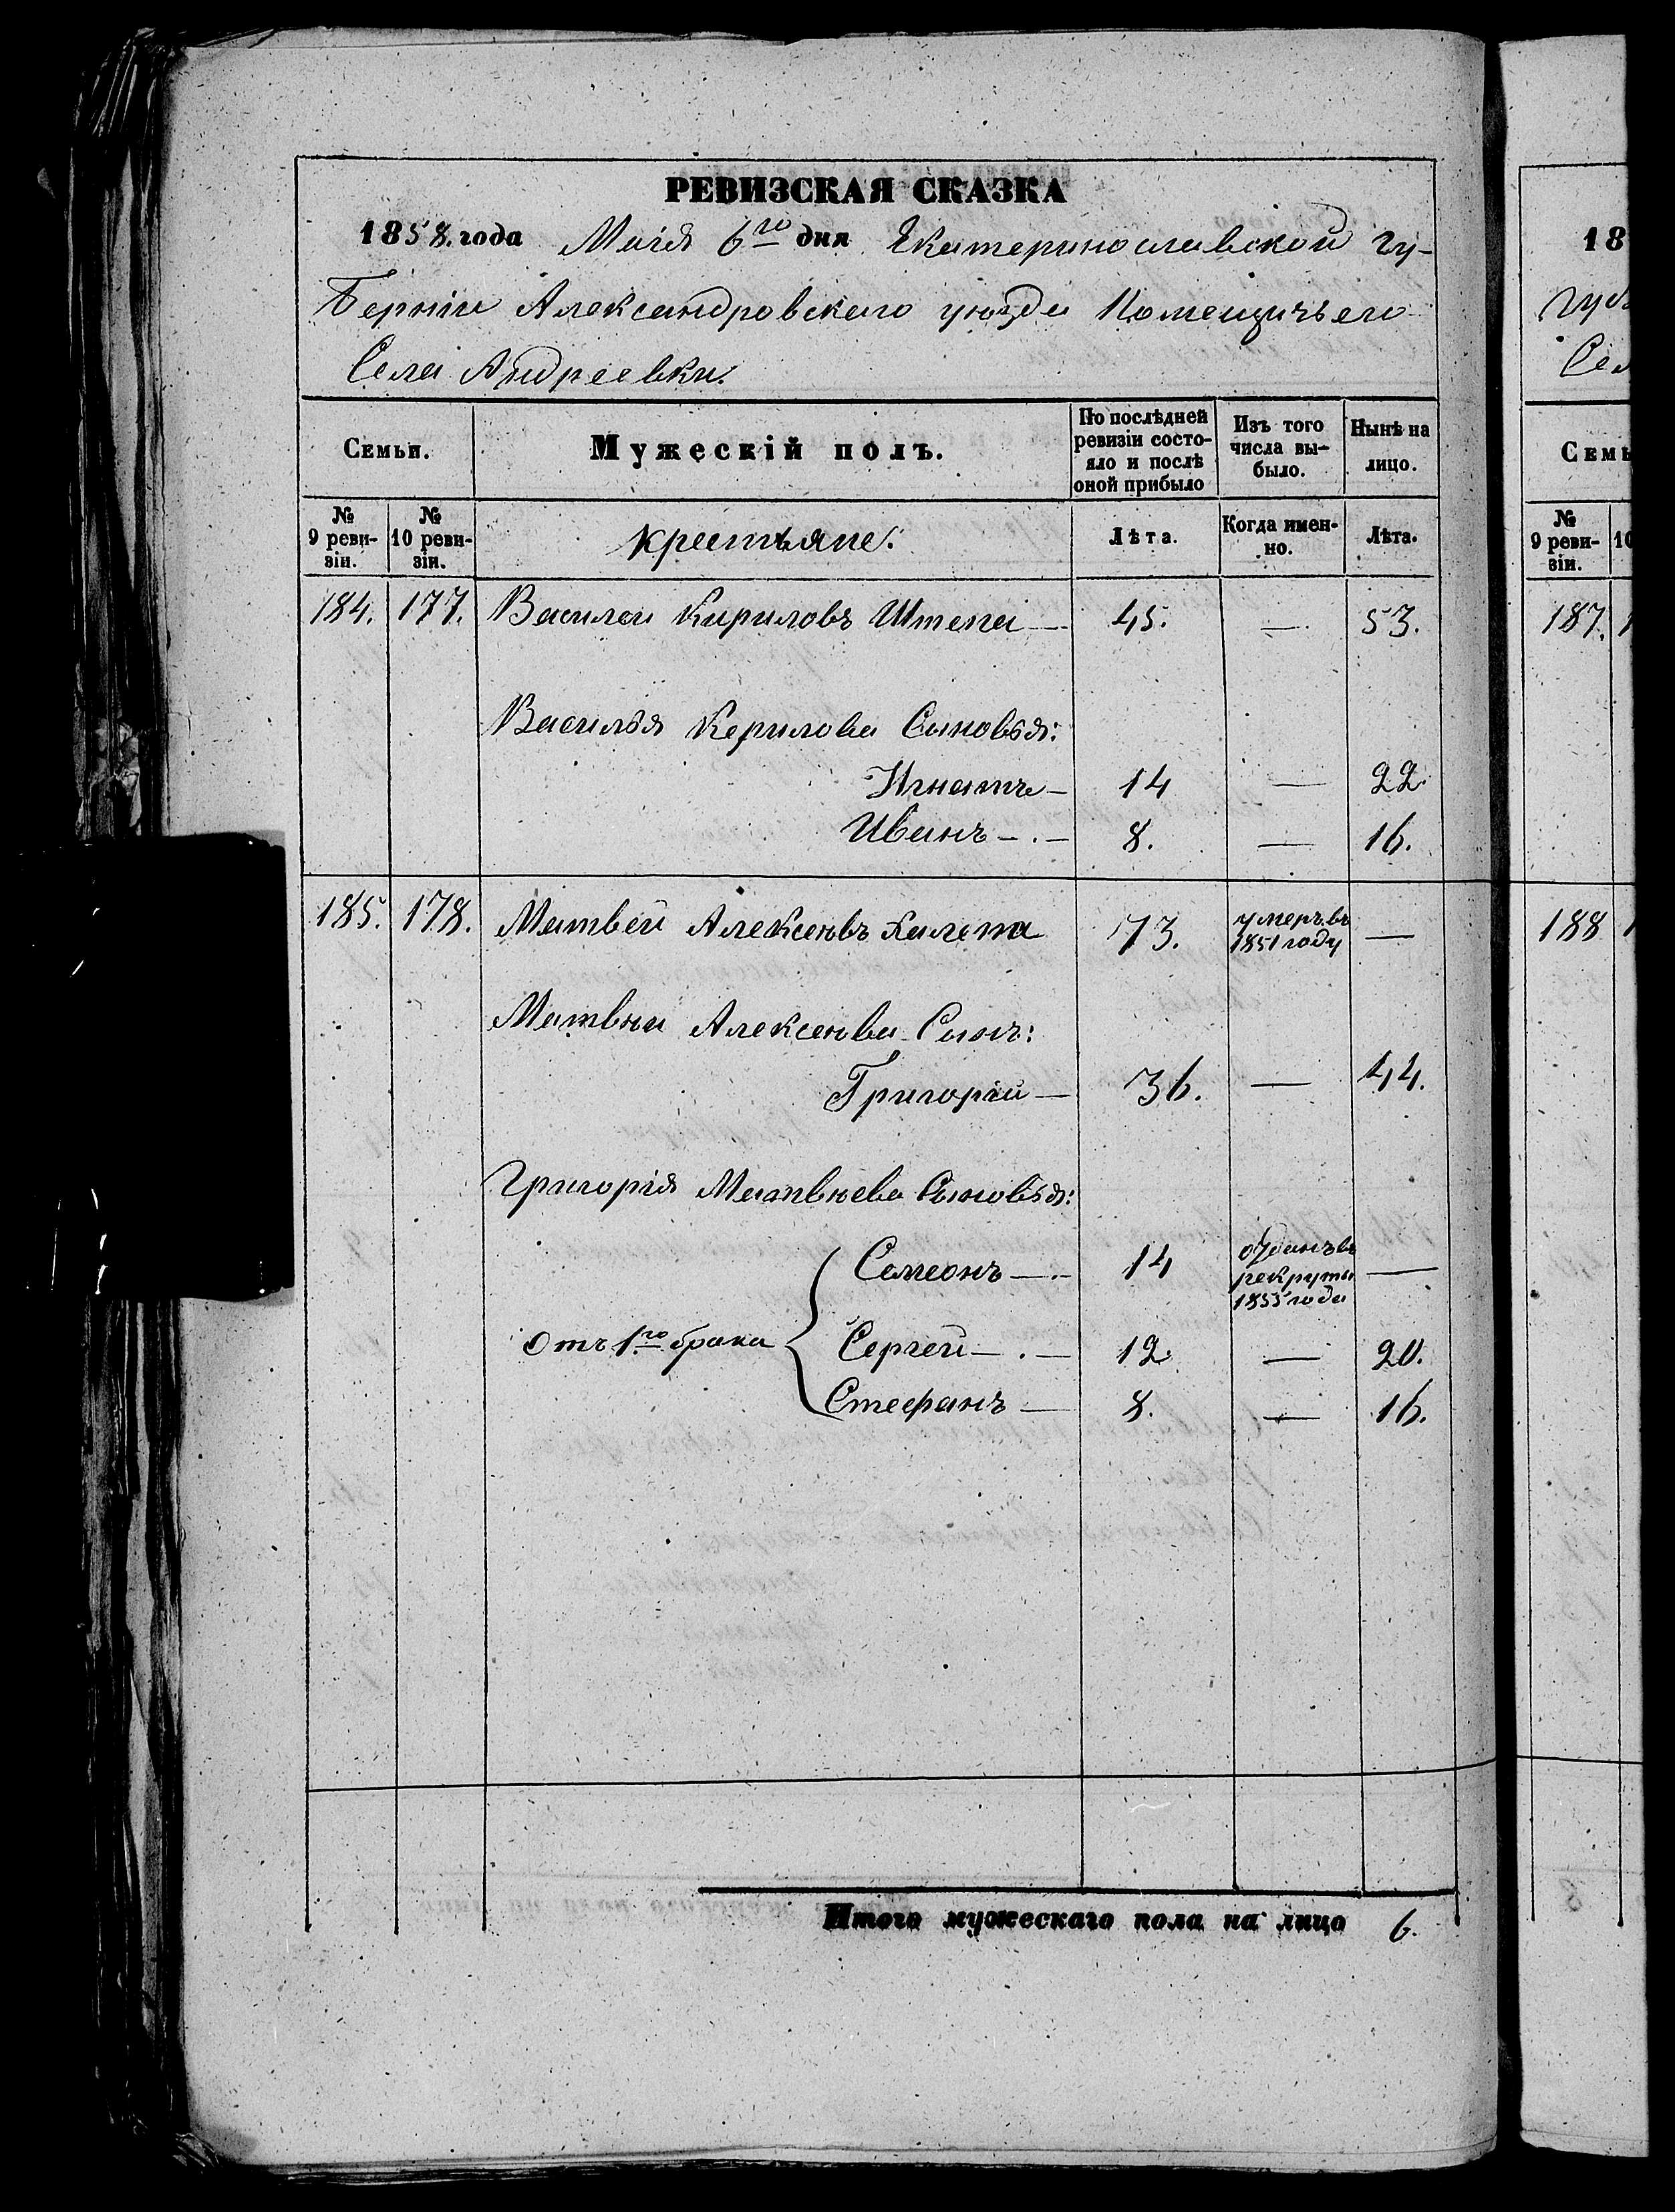 РЕВИЗСКАЯ СКАЗКА
1858. года Маія 6го дня Екатеринославской гу-
берніи Александровскаго уѣзда Помещичьего
Села Андреевки.
Семьи.
Мужескій полъ.
По послѣдней ревизіи состояло и послѣ оной прибыло
Изъ того числа выбыло.
Нынѣ на лицо.
№ 9 ревизіи.
№ 10 ревизіи.
крестьяне.
Лѣта.
Когда именно.
Лѣта.
184. 177. Василей Кириловъ Штепа — 45. — 53.
Василья Керилова Сыновья:
Игнатъ — 14 — 22.
Иванъ — . — 8. — 16.
185. 178. Матвей Алексеѣвъ Халета 73. умеръ въ 1851 году —
Матвѣя Алексеѣва Сынъ:
Григорій — 36. — 44.
Григорія Матвѣева Сыновья:
Семеонъ — . — 14 отданъ въ рекруты 1855 года —
Отъ 1го брака
Сергей — . — 12 — 20.
Стефанъ — 8. — 16.
Итого мужескаго пола на лицо 6.
18
губ
Сел
Семь
№ 9 ревизіи.
10
187.
188